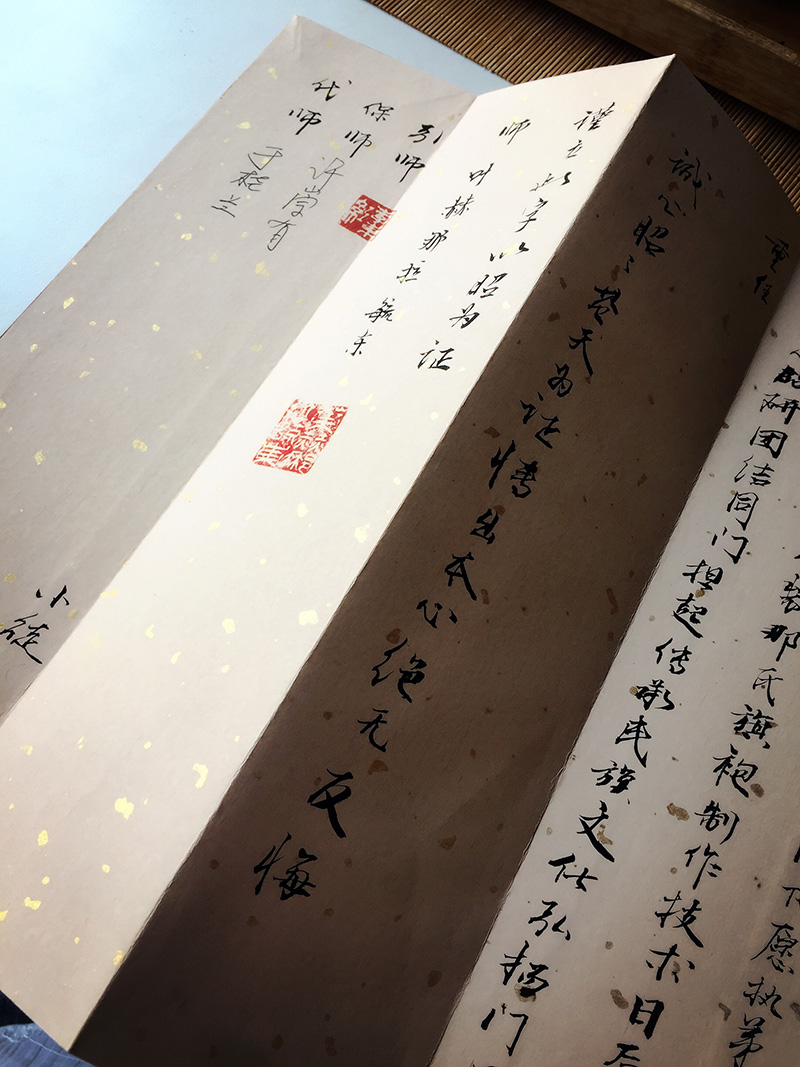 下愿执弟
那氏旗袍制作技术日后
研团结同门担起传承民族文化弘扬门
重任
诚心昭昭苍天为证情出本心绝无反悔
谨立此字以昭为证
师 叶赫那拉 毓
引师
保师 许崇有
代师 于 兰
小徒